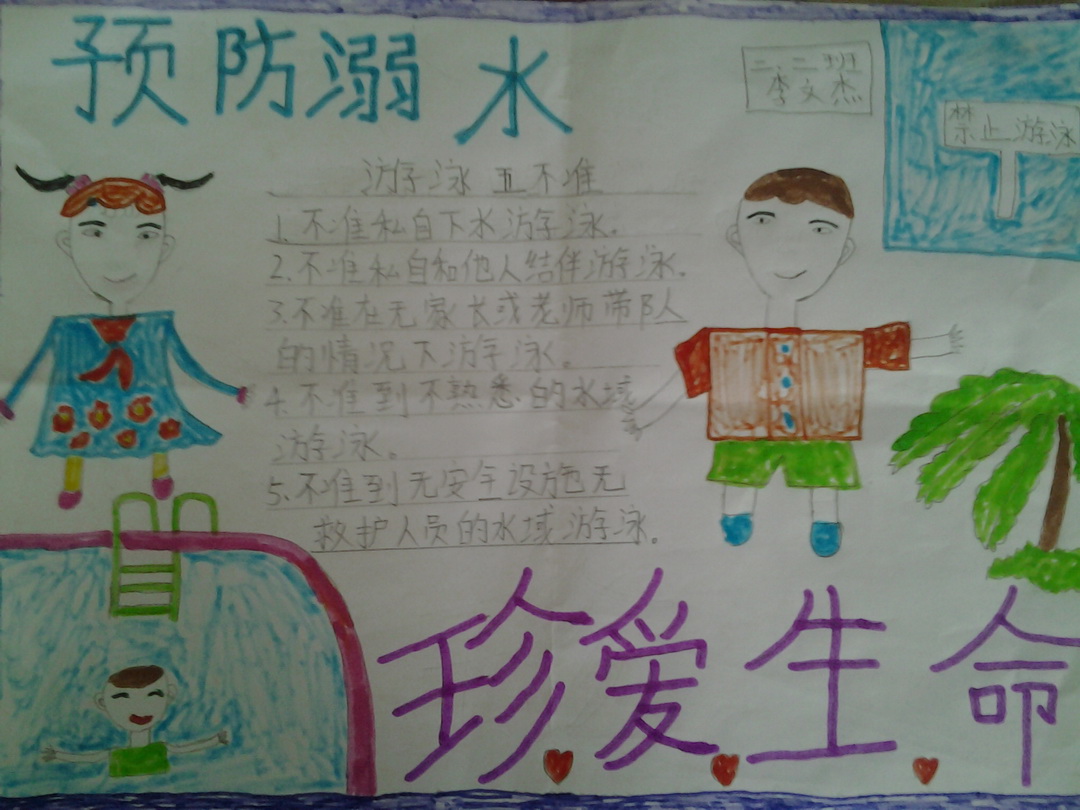 预防溺水
二.二班
李文杰
禁止游泳
游泳五不准
1.不准私自下水游泳。
2.不准私自和他人结伴游泳.
3.不准在无家长或老师带队
的情况下游泳。
4.不准到不熟悉的水域
游泳。
5.不准到无安全设施无
救护人员的水域游泳。
珍爱生命